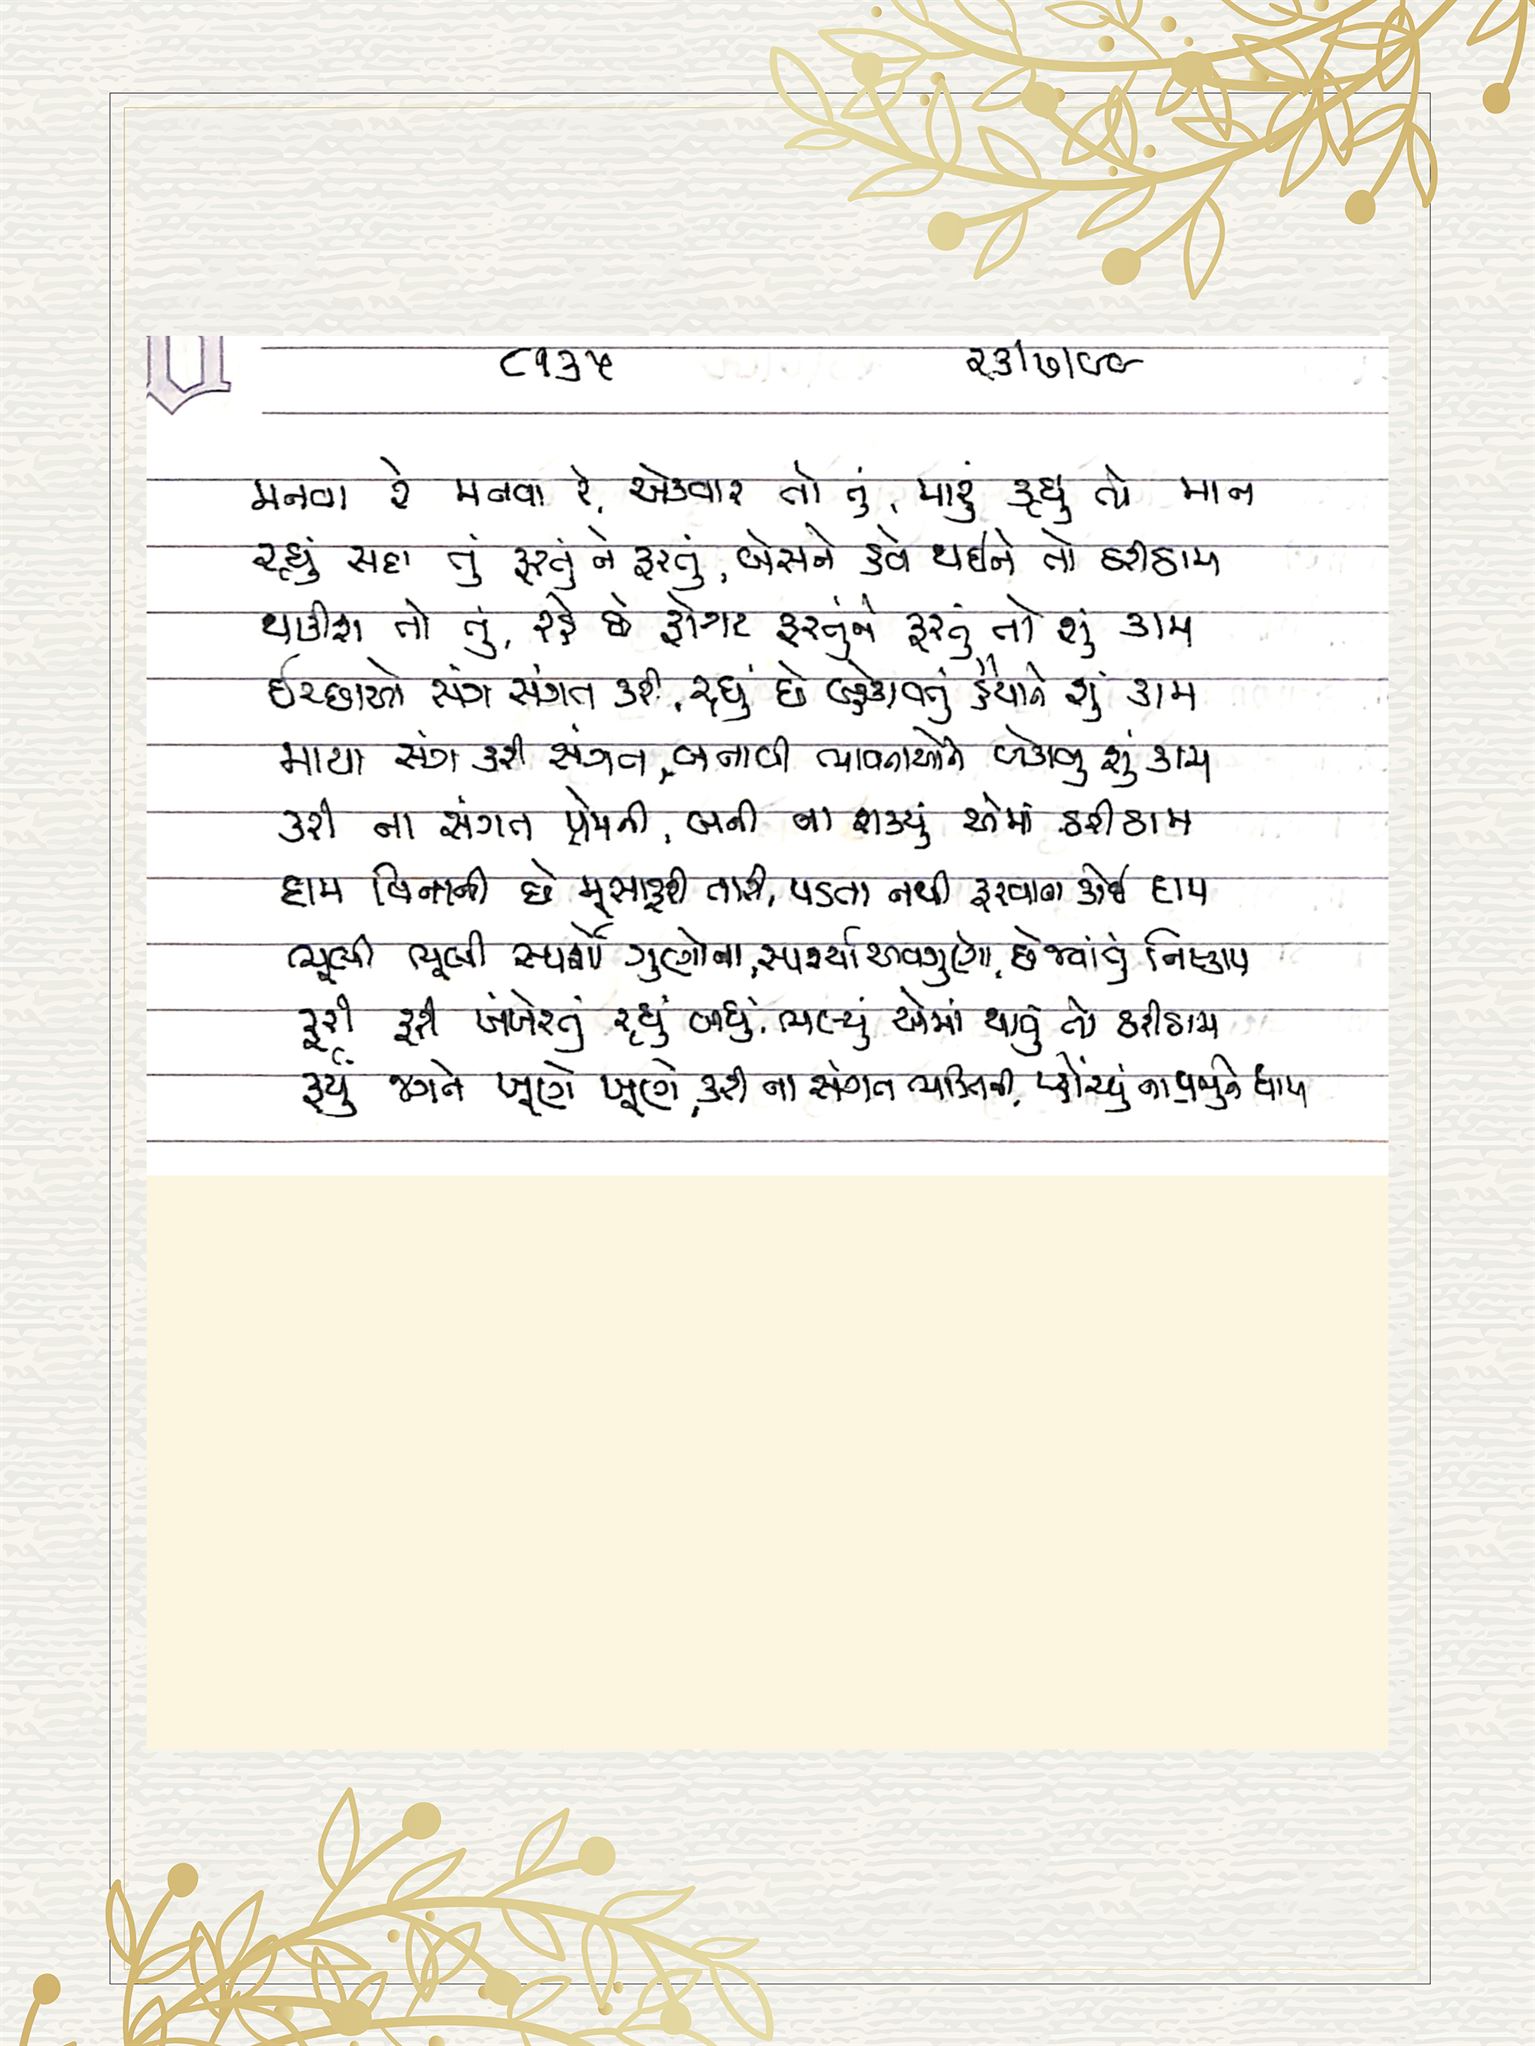 ૮૧૩૫ ૨૩/૭/૯૯
મનવા રે મનવા રે, એકવાર તો તું, મારું કહ્યું તો માન
રહ્યું સદા તું ફરતું ને ફરતું, બેસને હવે થઈને તો ઠરીઠામ
થાકીશ તો તું, રહે છે ફોગટ ફરતુંને ફરતું તો શું કામ
ઈચ્છાઓ સંગ સંગત કરી, રહ્યું છે બહેકાવતું હૈયાને શું કામ
માયા સંગ કરી સંગત, બનાવી ભાવનાઓને બેકાબુ શું કામ
કરી ના સંગત પ્રેમની, બની ના શક્યું એમાં ઠરીઠામ
દામ વિનાની છે મૂસાફરી તારી, પડતા નથી ફરવાના કોઈ દામ
ભૂલી ભૂલી સ્પર્શો ગુણોના, સ્પર્શ્યા અવગુણો, છે જ્યાં તું નિષ્કામ
ફરી ફરી ખંખેરતું રહ્યું બધું, ભૂલ્યું એમાં થાવું તો ઠરીઠામ
ફર્યું જગને ખૂણે ખૂણે, કરી ના સંગત ભક્તિની, પહોંચ્યું ના પ્રભુને ધામ